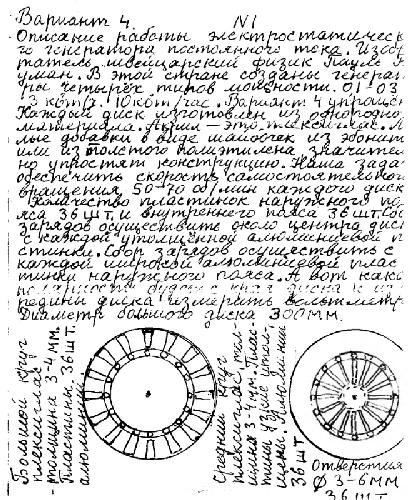 Вариант 4. N1
Описание работы электростатическ
го генератора постоянного тока. Изоб
татель швейцарский физик Пауль
уман. В этой стране созданы генерат
ры четырёх типов мощности. 01-03
3 квт/г. 10 квт/час. Вариант 4 упрощен
Каждый диск изготовлен из однородно
материала. Акрил - это плексиглас.
лые добавки в виде шайбочек из эбонит
или из толстого полиэтилена значител
но упростят конструкцию. Наша зада
обеспечить скорость самостоятельного
вращения 50-70 об/мин каждого диск
Количество пластинок наружного по
яса 36 шт. и внутреннего пояса 36 шт. Сбо
зарядов осуществить около центра диск
с каждой утолщённой алюминиевой п
стинки. Сбор зарядов осуществить с
каждой широкой алюминиевой плас
тинки наружного пояса. А вот како
полярность будет с края диска и из
редины диска измерить вольтметр
Диаметр большого диска 300мм.
Большой круг
плексиглас
толщина 3-4мм.
Пластины 36шт.
алюминий
Средний круг
плексиглас тол-
щина 3-4мм. Плас-
тины узкие утол-
щены. Алюминий
36 шт
Отверстия
Ø 3-6мм
36 шт